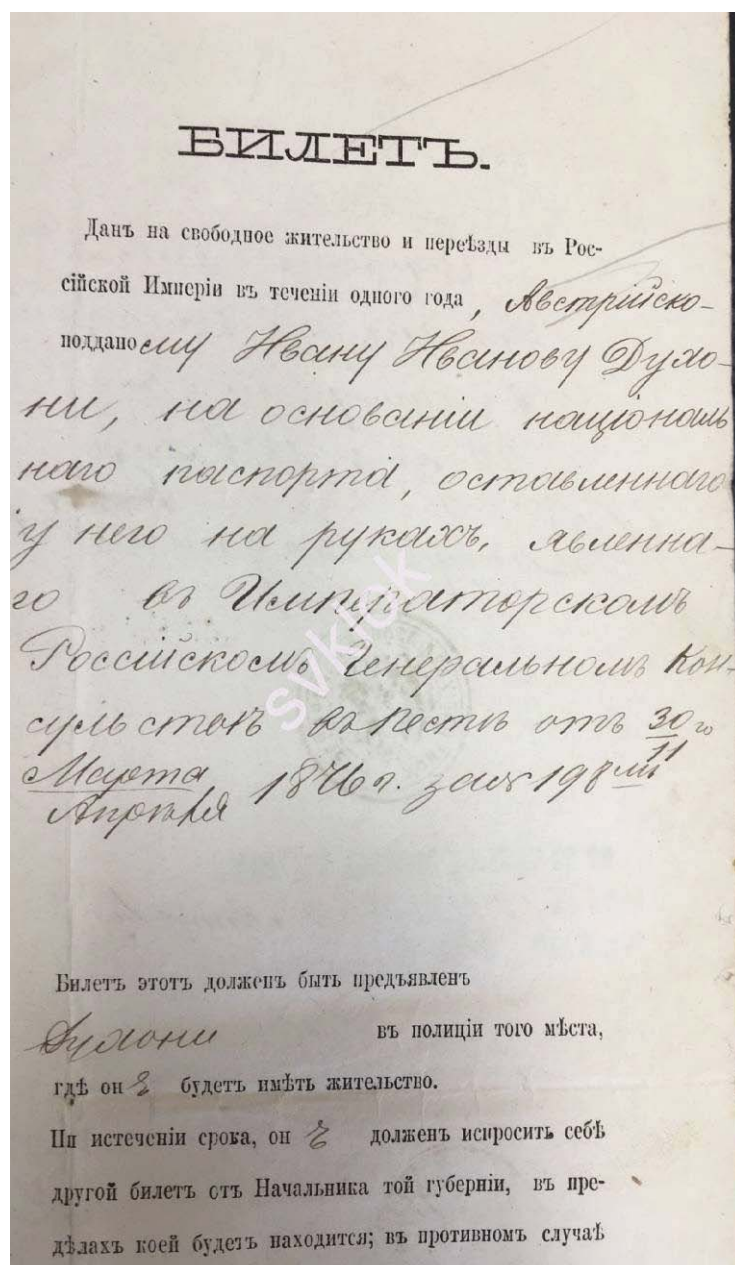 БИЛЕТЪ.
Данъ на свободное жительство и переѣзды въ Рос-
сійской Имперіи въ теченіи одного года, Австрійско-
подданому Ивану Иванову Духо-
ни, на основаніи націоналъ
наго паспорта, оставленнаго
у него на рукахъ, явленна-
го въ Императорскомъ
Россійскомъ Генеральномъ Кон-
сульствѣ въ Пестѣ отъ 30го
Марта 11
Апрѣля 1876 г. за № 198
svklok
Билетъ этотъ долженъ быть предъявленъ
Духони въ полиціи того мѣста,
гдѣ онъ будетъ имѣть жительство.
По истеченіи срока, онъ долженъ испросить себѣ
другой билетъ отъ Начальника той губерніи, въ пре-
дѣлахъ коей будетъ находится; въ противномъ случаѣ